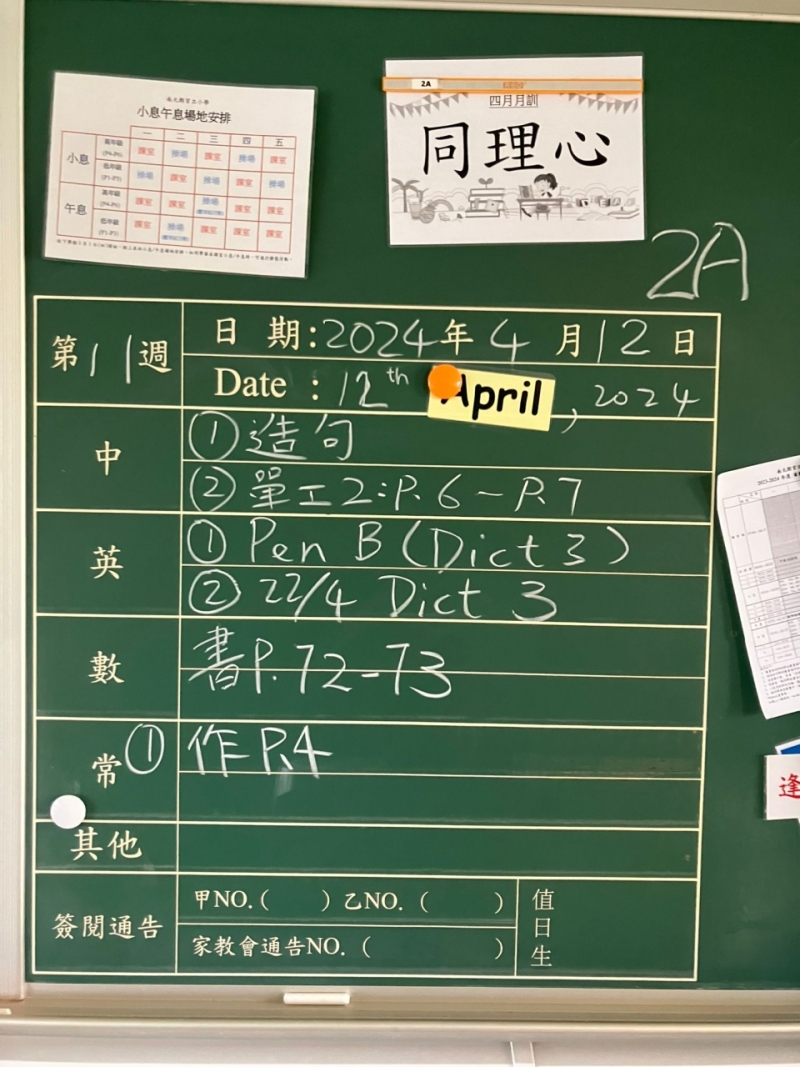 小息午息場地安排
一 二 三 四 五
小息
高年級
(P4-P6)
課室 操場 課室 操場 課室
低年級
(P1-P3)
操場 課室 操場 課室 操場
午息
高年級
(P4-P6)
課室 課室 操場 課室 課室
低年級
(P1-P3)
課室 操場 課室 課室 課室
2A
四月月訓
同理心
2A
第11週
日期:2024年4月12日
Date : 12th April, 2024
中
①造句
②單工2:P.6-P.7
英
①Pen B (Dict 3)
②22/4 Dict 3
數
書P.72-73
常①
作P.4
其他
簽閱通告
甲NO.( ) 乙NO. ( )
家教會通告NO. ( )
值日生
逢